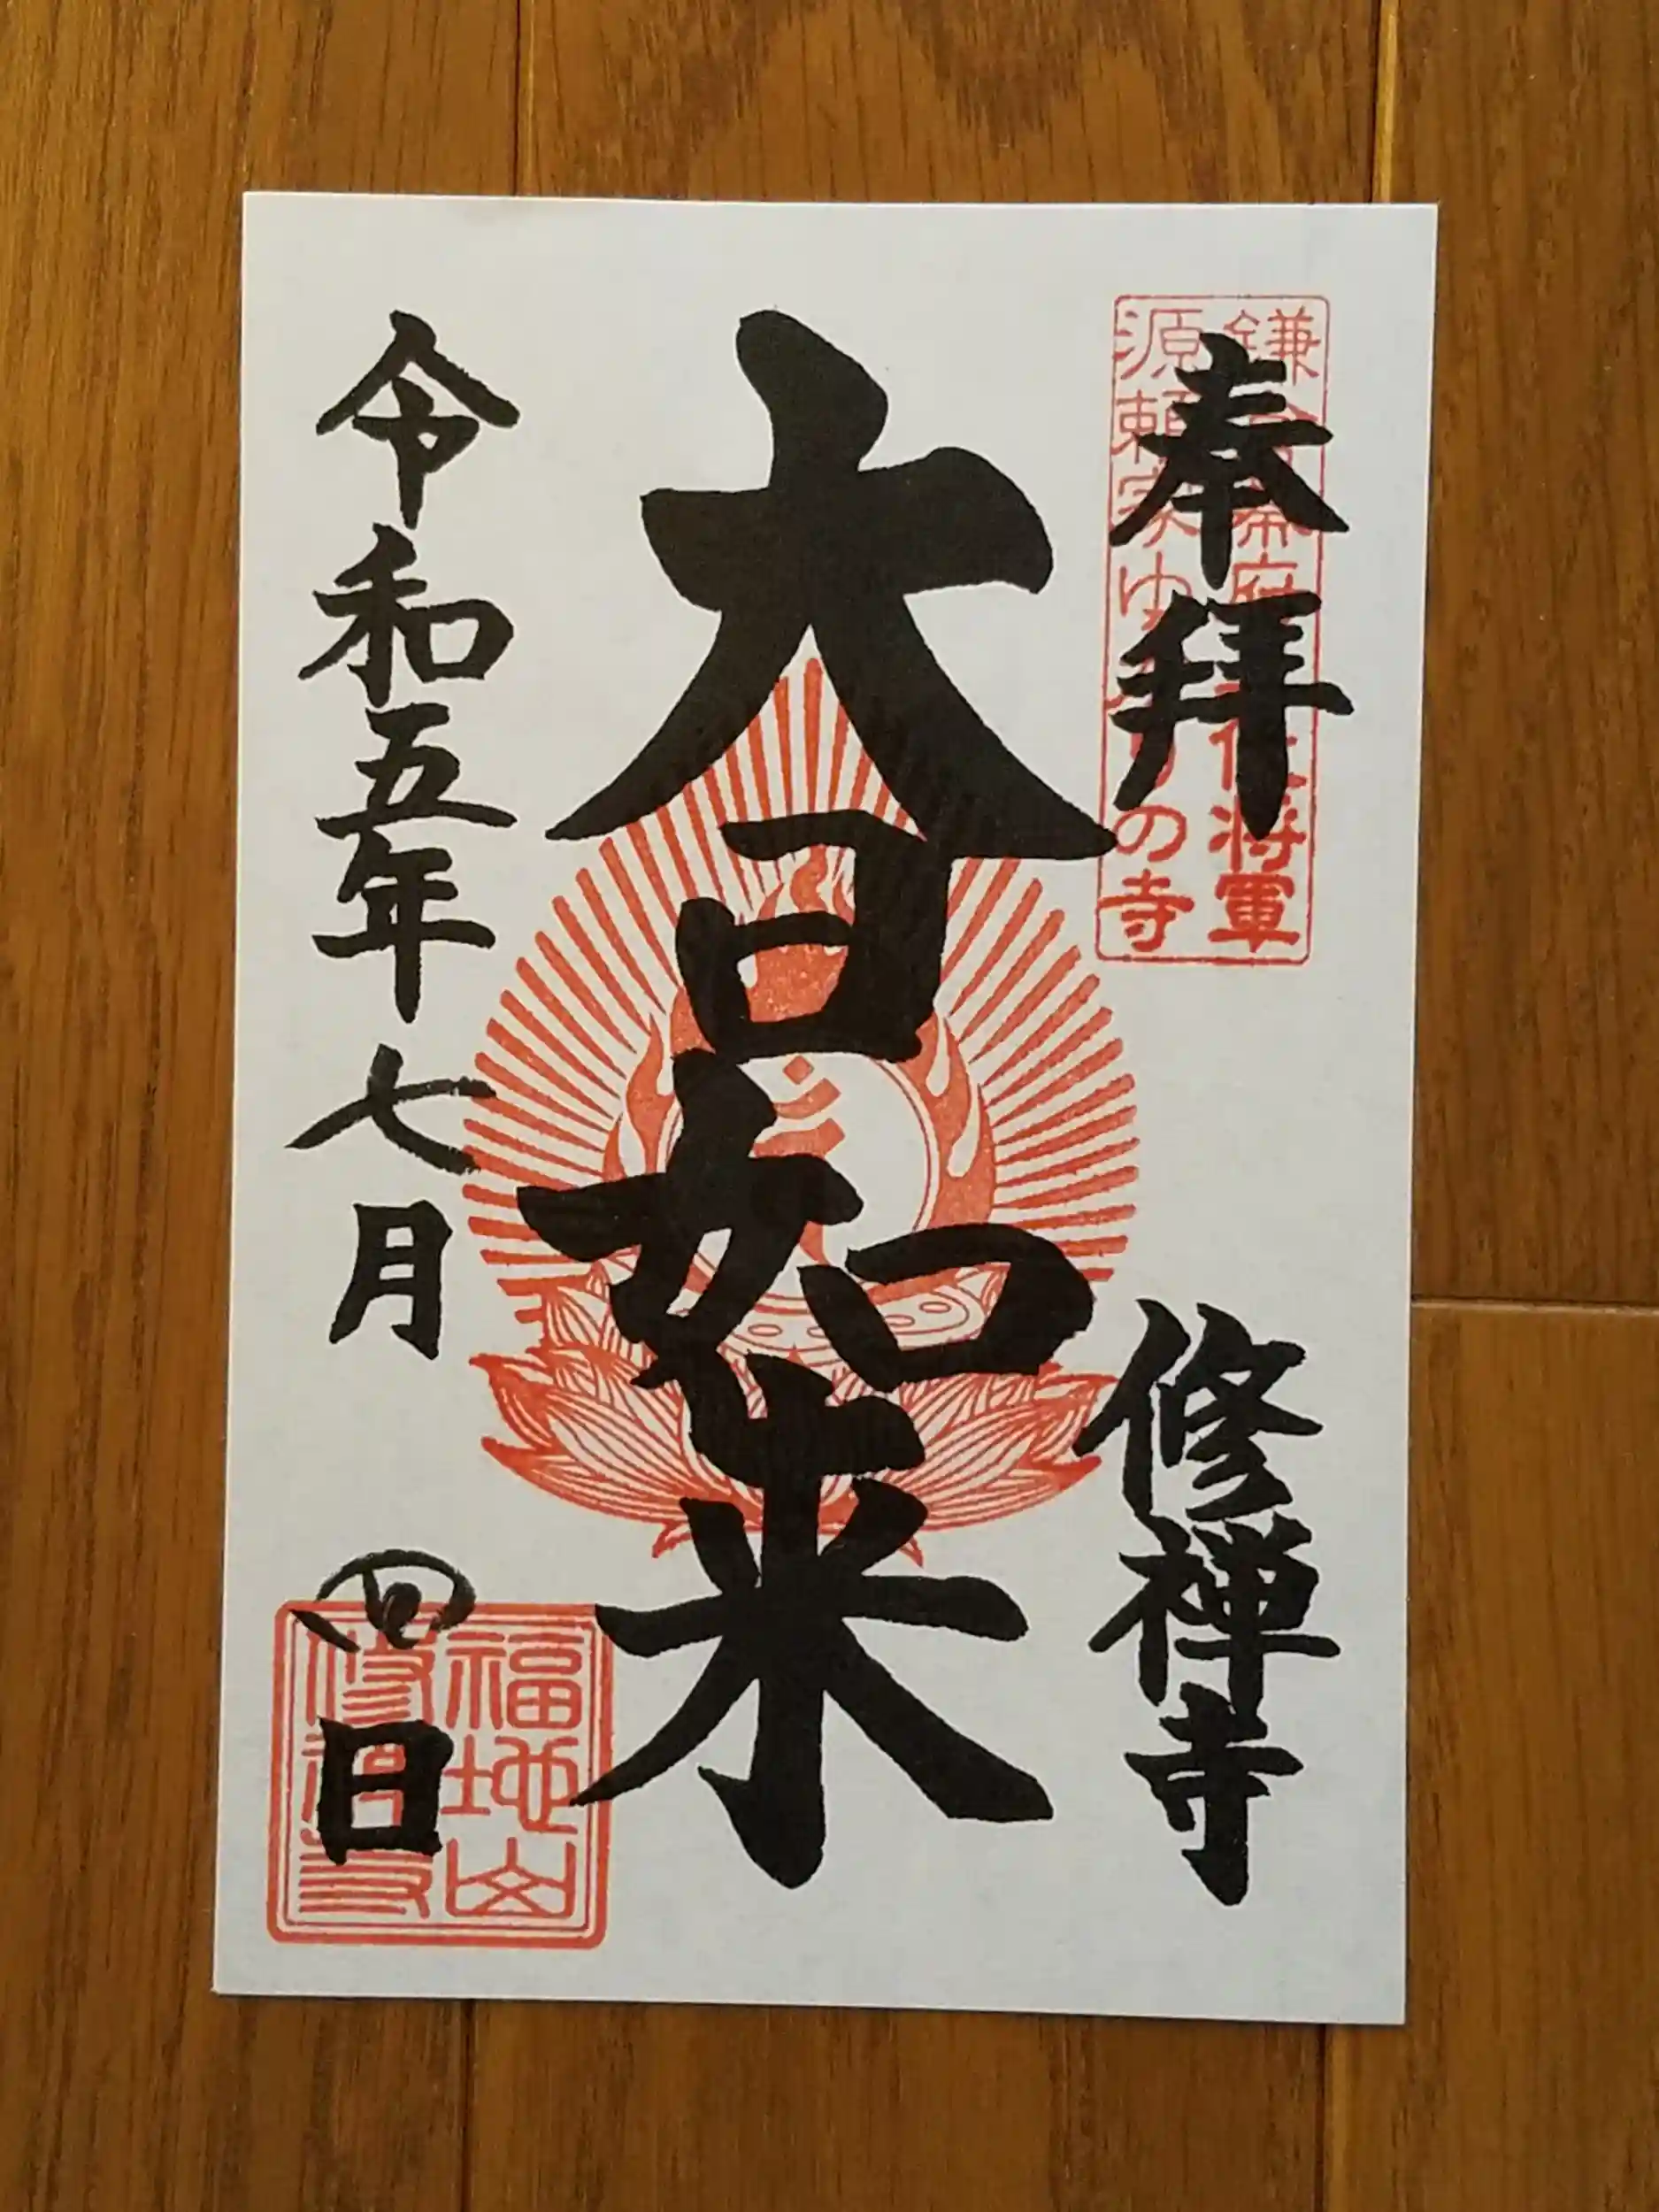 奉拝
鎌倉幕府二代将軍
源頼家ゆかりの寺
修禅寺
大日如来
令和五年七月四日
福地山
修禅寺